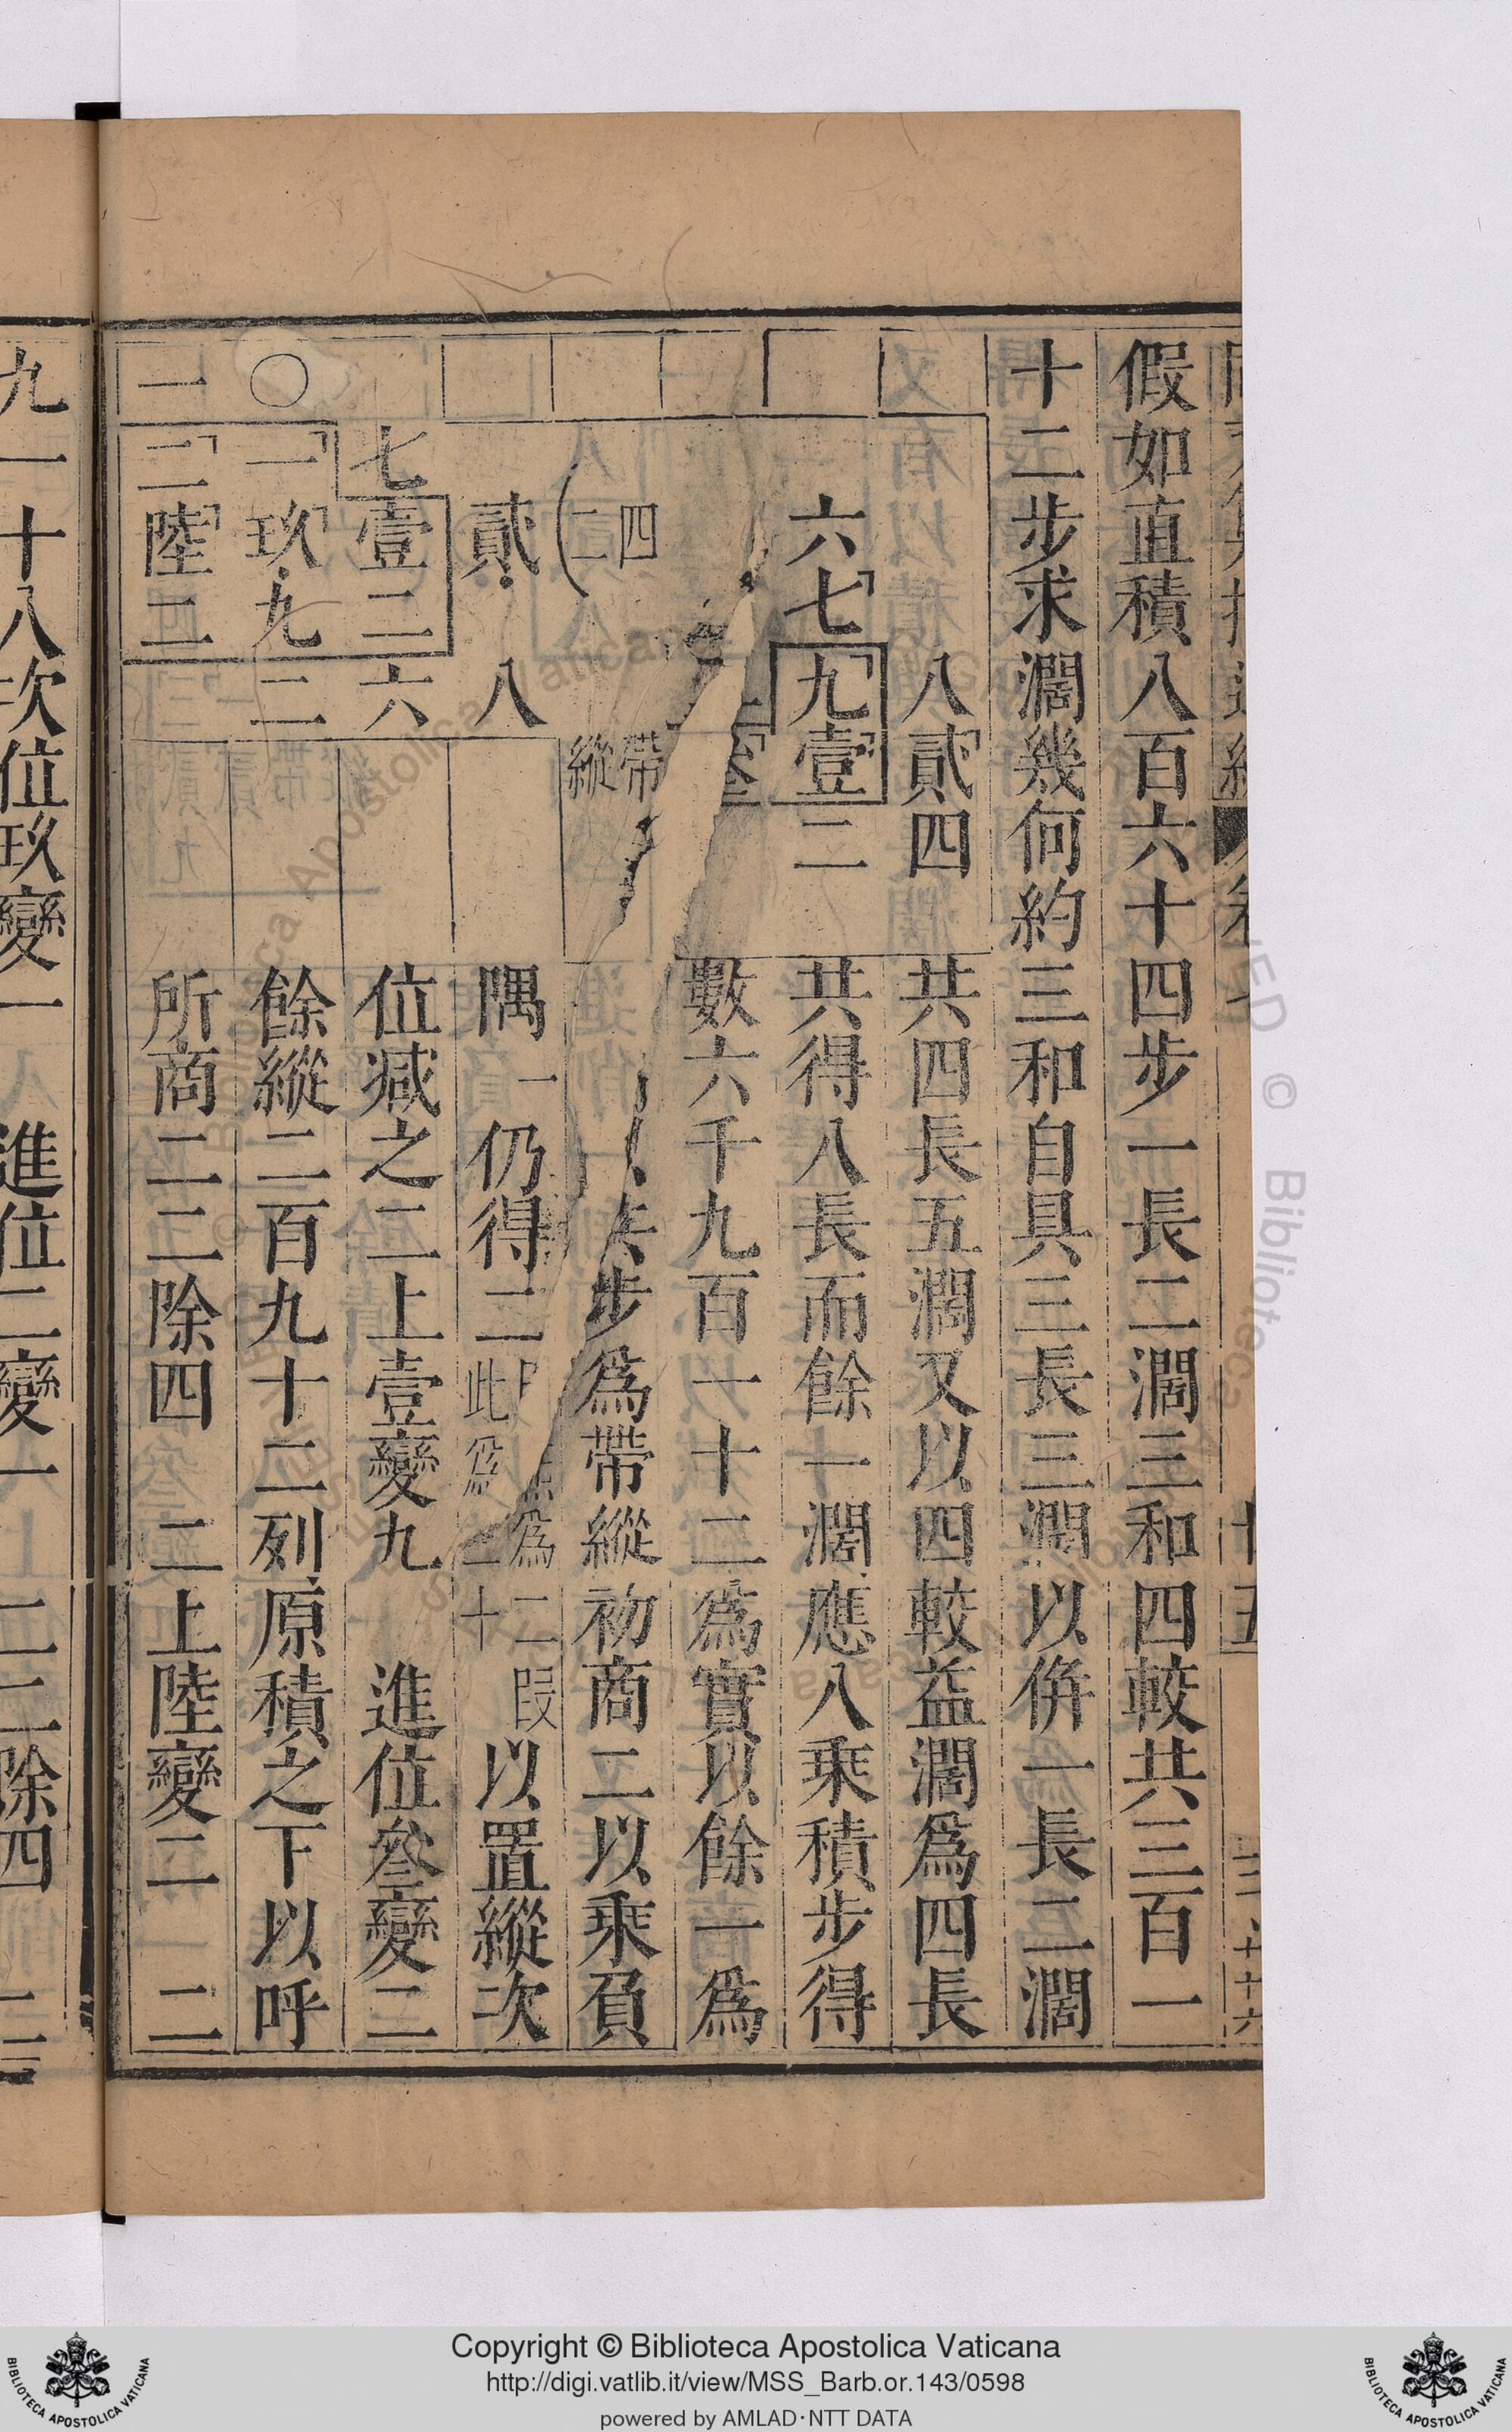 假如直積八百六十四步一長二濶三和四較共三百一
十二步求濶幾何約三和自具三長三濶以併一長二濶
共四長五濶又以四較益濶為四長
共得八長而餘一濶應八乘積步得
數六千九百一十二為實以餘一為
步為帶縱初商二以乘負
隅一仍得二
以置縱次
位減之二上壹變九 進位叄變二
餘縱二百九十二列原積之下以呼
所商二二除四 二上陸變二 二
八貳四
六七九壹二
四二
帶縱
貳八
七壹二六
〇一玖九二
一二陸二
九一十八次位玖變一 進位二變一 二二除四
Copyright © Biblioteca Apostolica Vaticana
http://digi.vatlib.it/view/MSS_Barb.or.143/0598
powered by AMLAD·NTT DATA
BIBLIOTECA APOSTOLICA VATICANA
BIBLIOTECA APOSTOLICA VATICANA